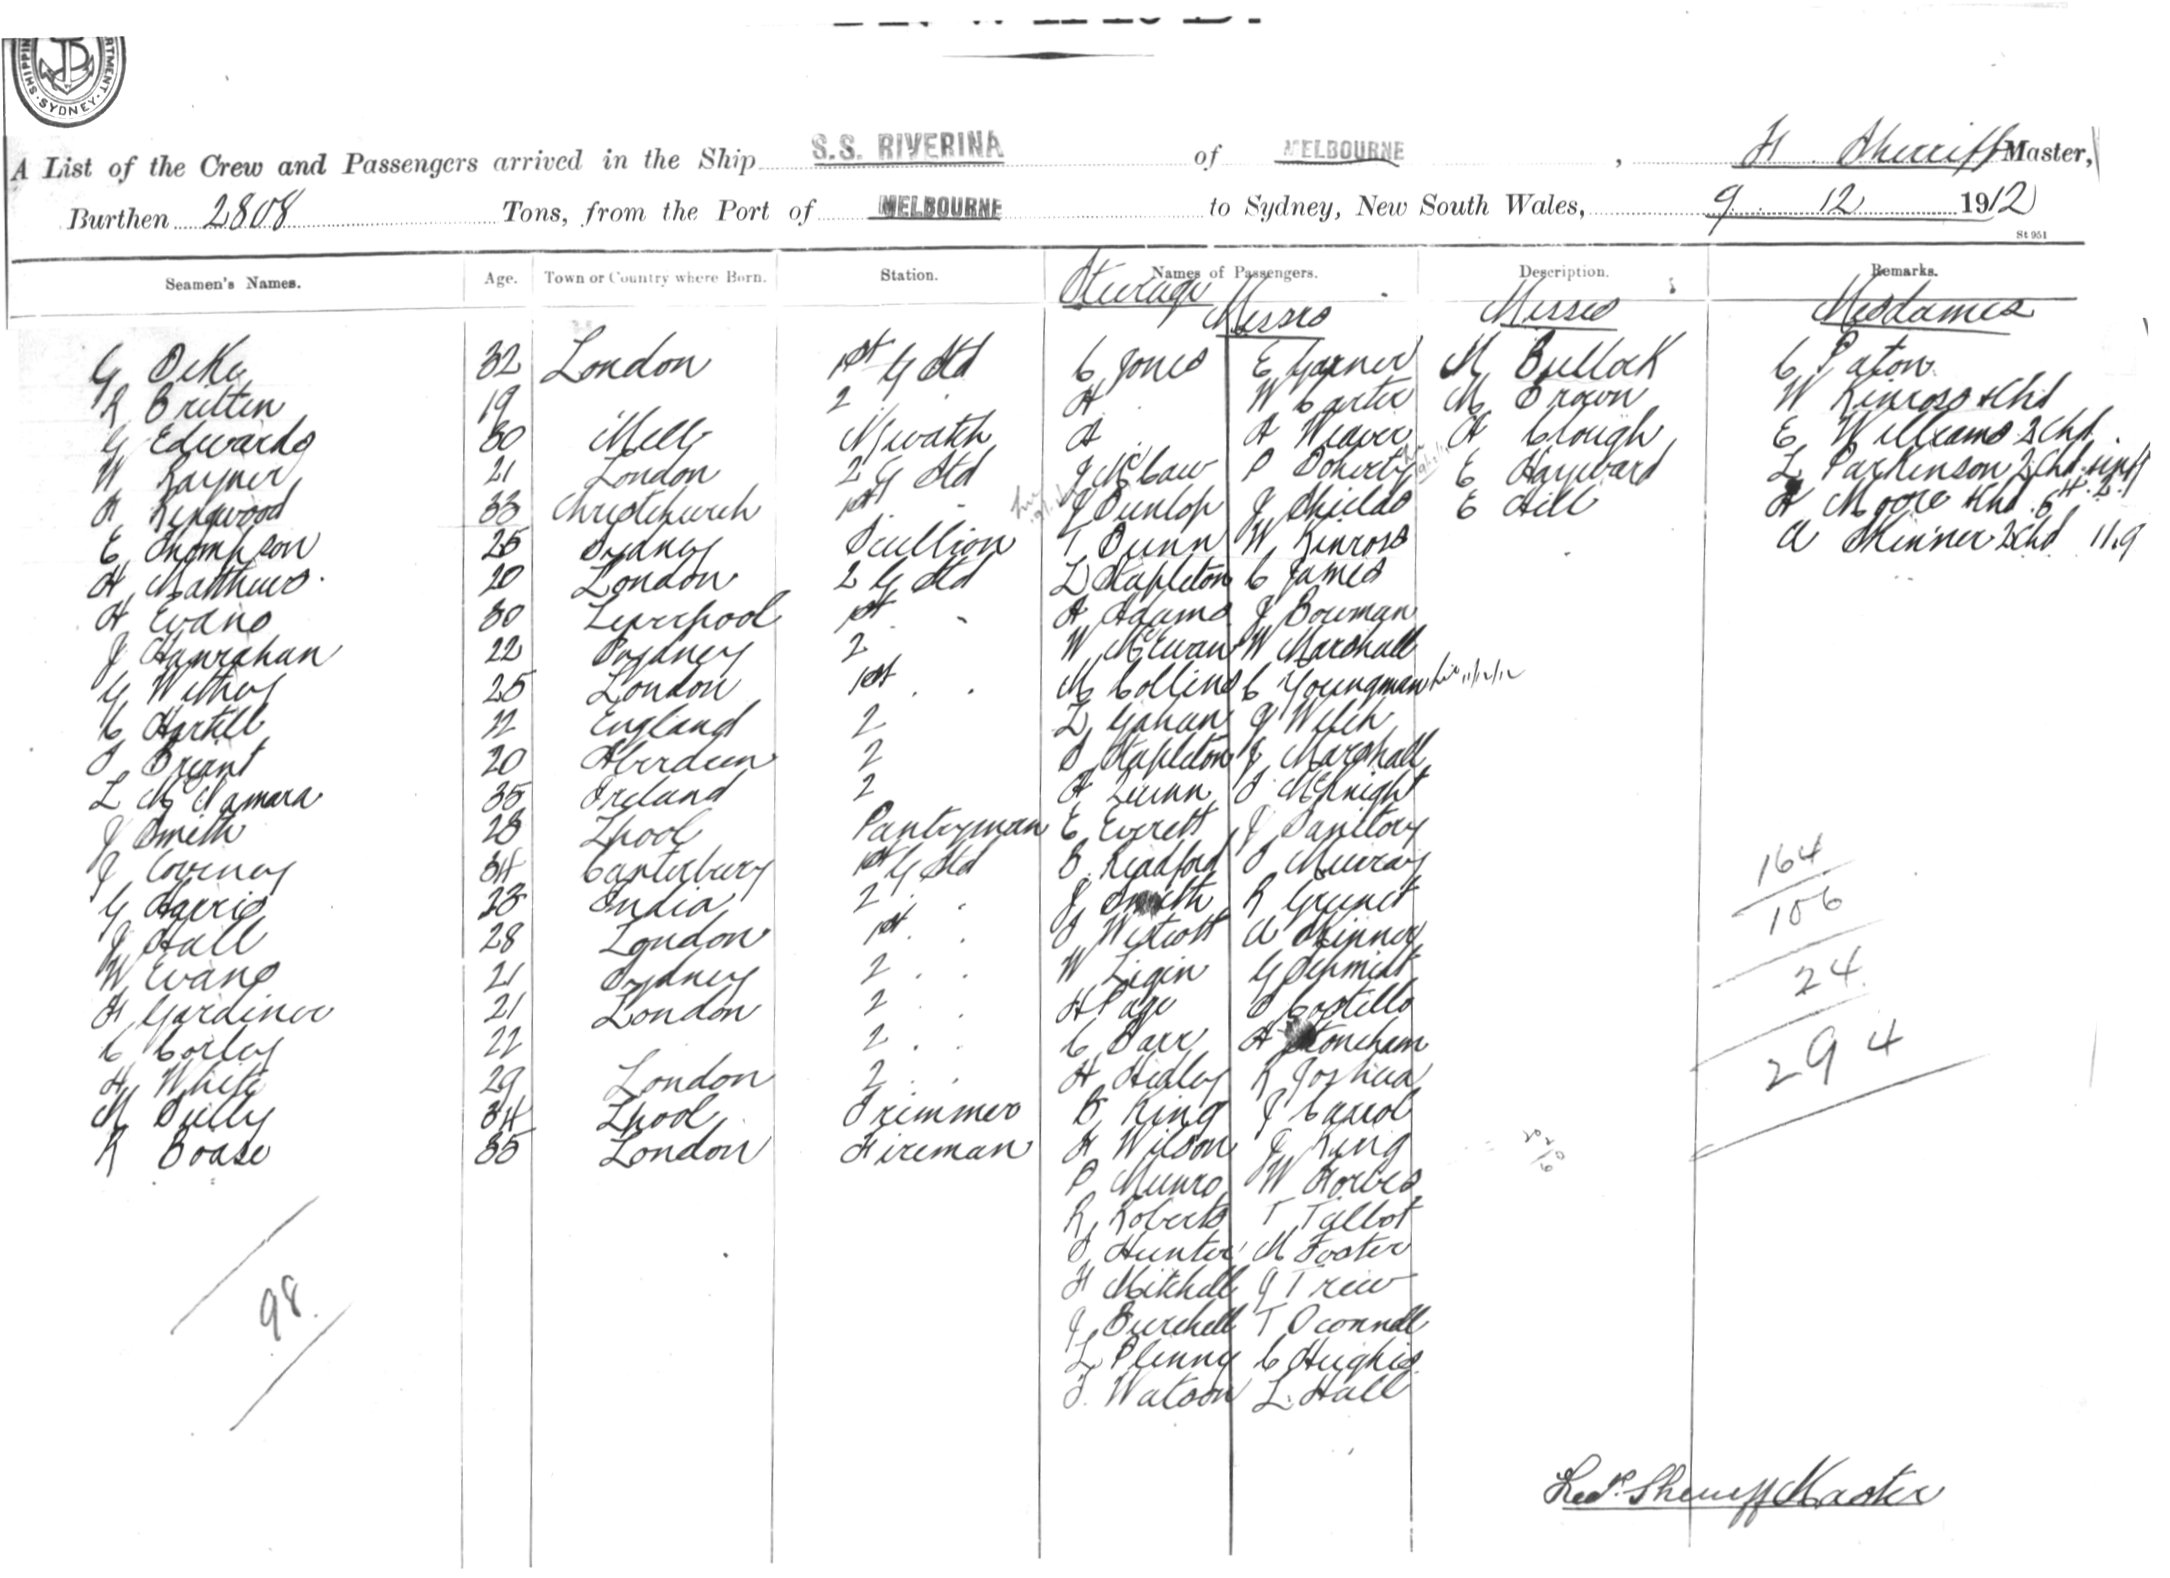 SHIPPING DEPARTMENT · SYDNEY ·
A List of the Crew and Passengers arrived in the Ship S.S. RIVERINA of MELBOURNE, H Sherriff Master,
Burthen 2808 Tons, from the Port of MELBOURNE to Sydney, New South Wales, 9 12 1912
St 951
Seamen's Names. Age. Town or Country where Born. Station. Names of Passengers. Description. Remarks.
Steerage
Messrs Misses Mesdames
G Dike 32 London 1st G Std C Jones E Garner M Bullock C Paton
R Britten 19 2 H W Carter M Brown W Kinross + Chd
G Edwards 30 Melb N watch A A Weaver A Clough E Williams 2 Chd
W Rayner 21 London 2 G Std J McCaw P Doherty E Hayward L Parkinson 2 Chd
A Ringwood 33 Christchurch 1st J Dunlop J Shields E Hill A Moore + Chd
E Thompson 25 Sydney Scullion T Dunn W Kinross A Skinner 2 Chd 11.9
H Matthews 20 London 2 G Std L Stapleton C James
H Evans 30 Liverpool 1st A Adams J Bowman
J Hanrahan 22 Sydney 2 W McEwan W Marshall
G Withey 25 London 1st M Collins C Youngman 11/12/12
C Hartill 22 England 2 L Gahan J Welch
S Briant 20 Aberdeen 2 S Stapleton J Marshall
L McNamara 35 Ireland 2 A Quinn S McKnight
J Smith 28 Lpool Pantryman E Everett J Sanitory
J Coveney 34 Canterbury 1st G Std B Readford S Murray
G Harris 23 India 2 J Smith R Grunet
J Hall 28 London 1st S Westcott A Skinner
W Evans 21 Sydney 2 W Ligin G Schmidt
H Gardiner 21 London 2 H Page S Costello
C Corley 22 2 C Barr A Stoneham
H White 29 London 2 H Hedley R Joshua
M Duily 34 Lpool Trimmer B King J Carrol
R Boase 35 London Fireman H Wilson J King
P Munro W Forbes
R Roberts T Talbot
S Hunter M Foster
H Mitchell J Trew
J Burchell T Oconnell
L Plenny C Hughes
S. Watson L. Hall
98.
164
106
24
294
Fred. Sherriff Master